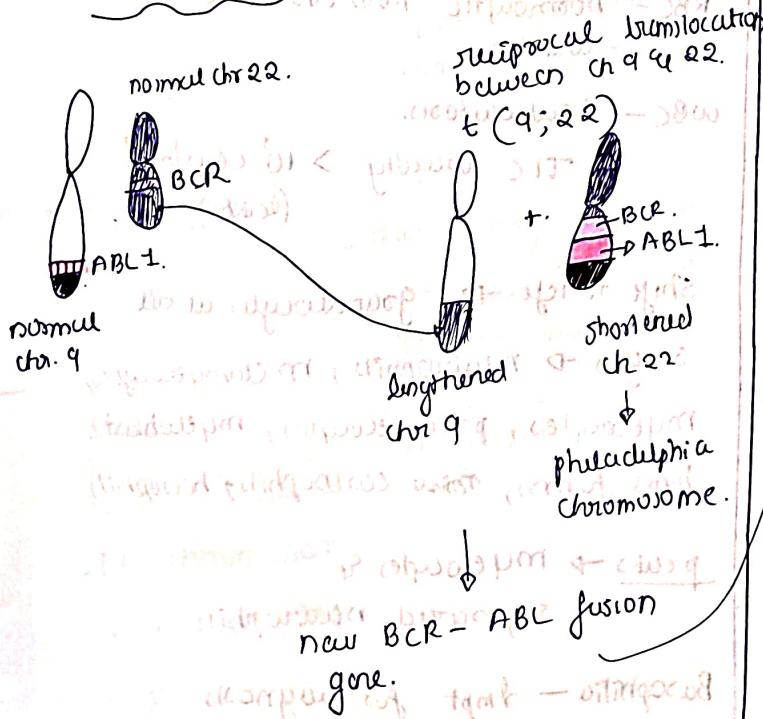 normal chr 22.
reciprocal translocation
between ch 9 & 22.
t (9; 22)
BCR
ABL 1.
normal
chr. 9
+.
BCR.
ABL 1.
lengthened
chr 9
shortened
ch 22
philadelphia
chromosome.
new BCR - ABL fusion
gene.